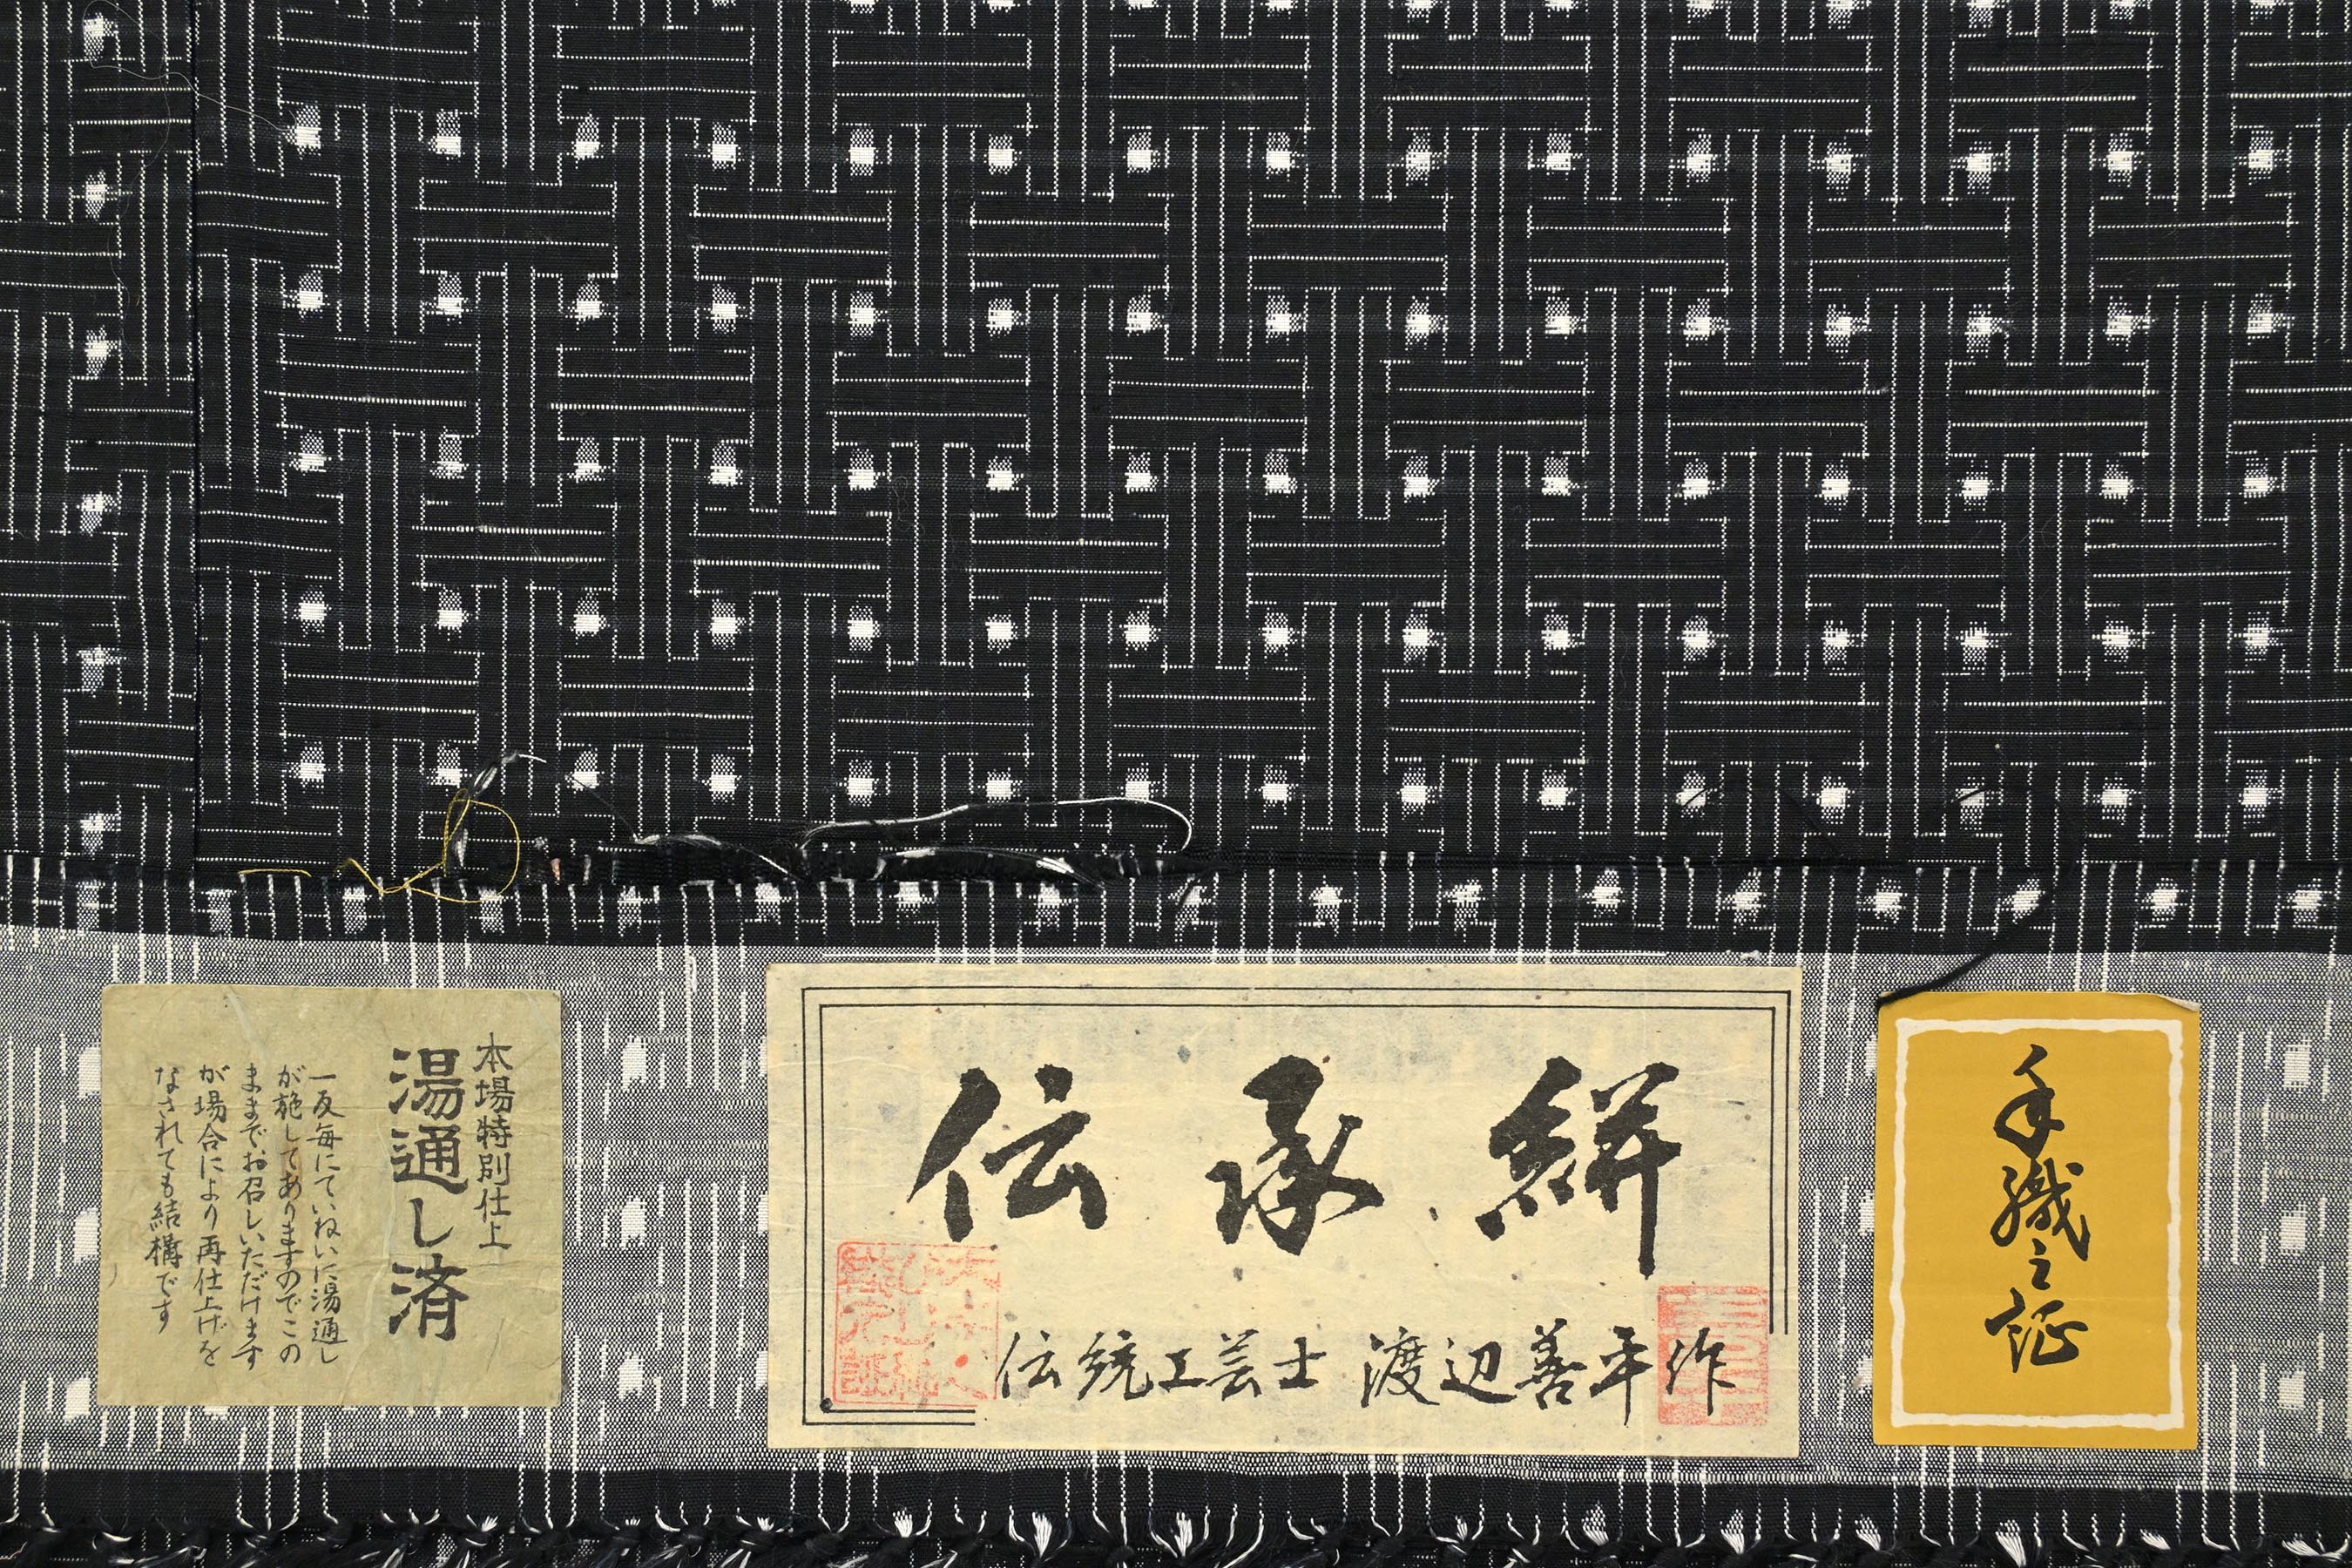 本場特別仕上
湯通し済
一反毎にていねいに湯通し
が施してありますのでこの
ままでお召しいただけます
が場合により再仕上げを
なされても結構です
伝承絣
伝統工芸士 渡辺善平作
手織之証